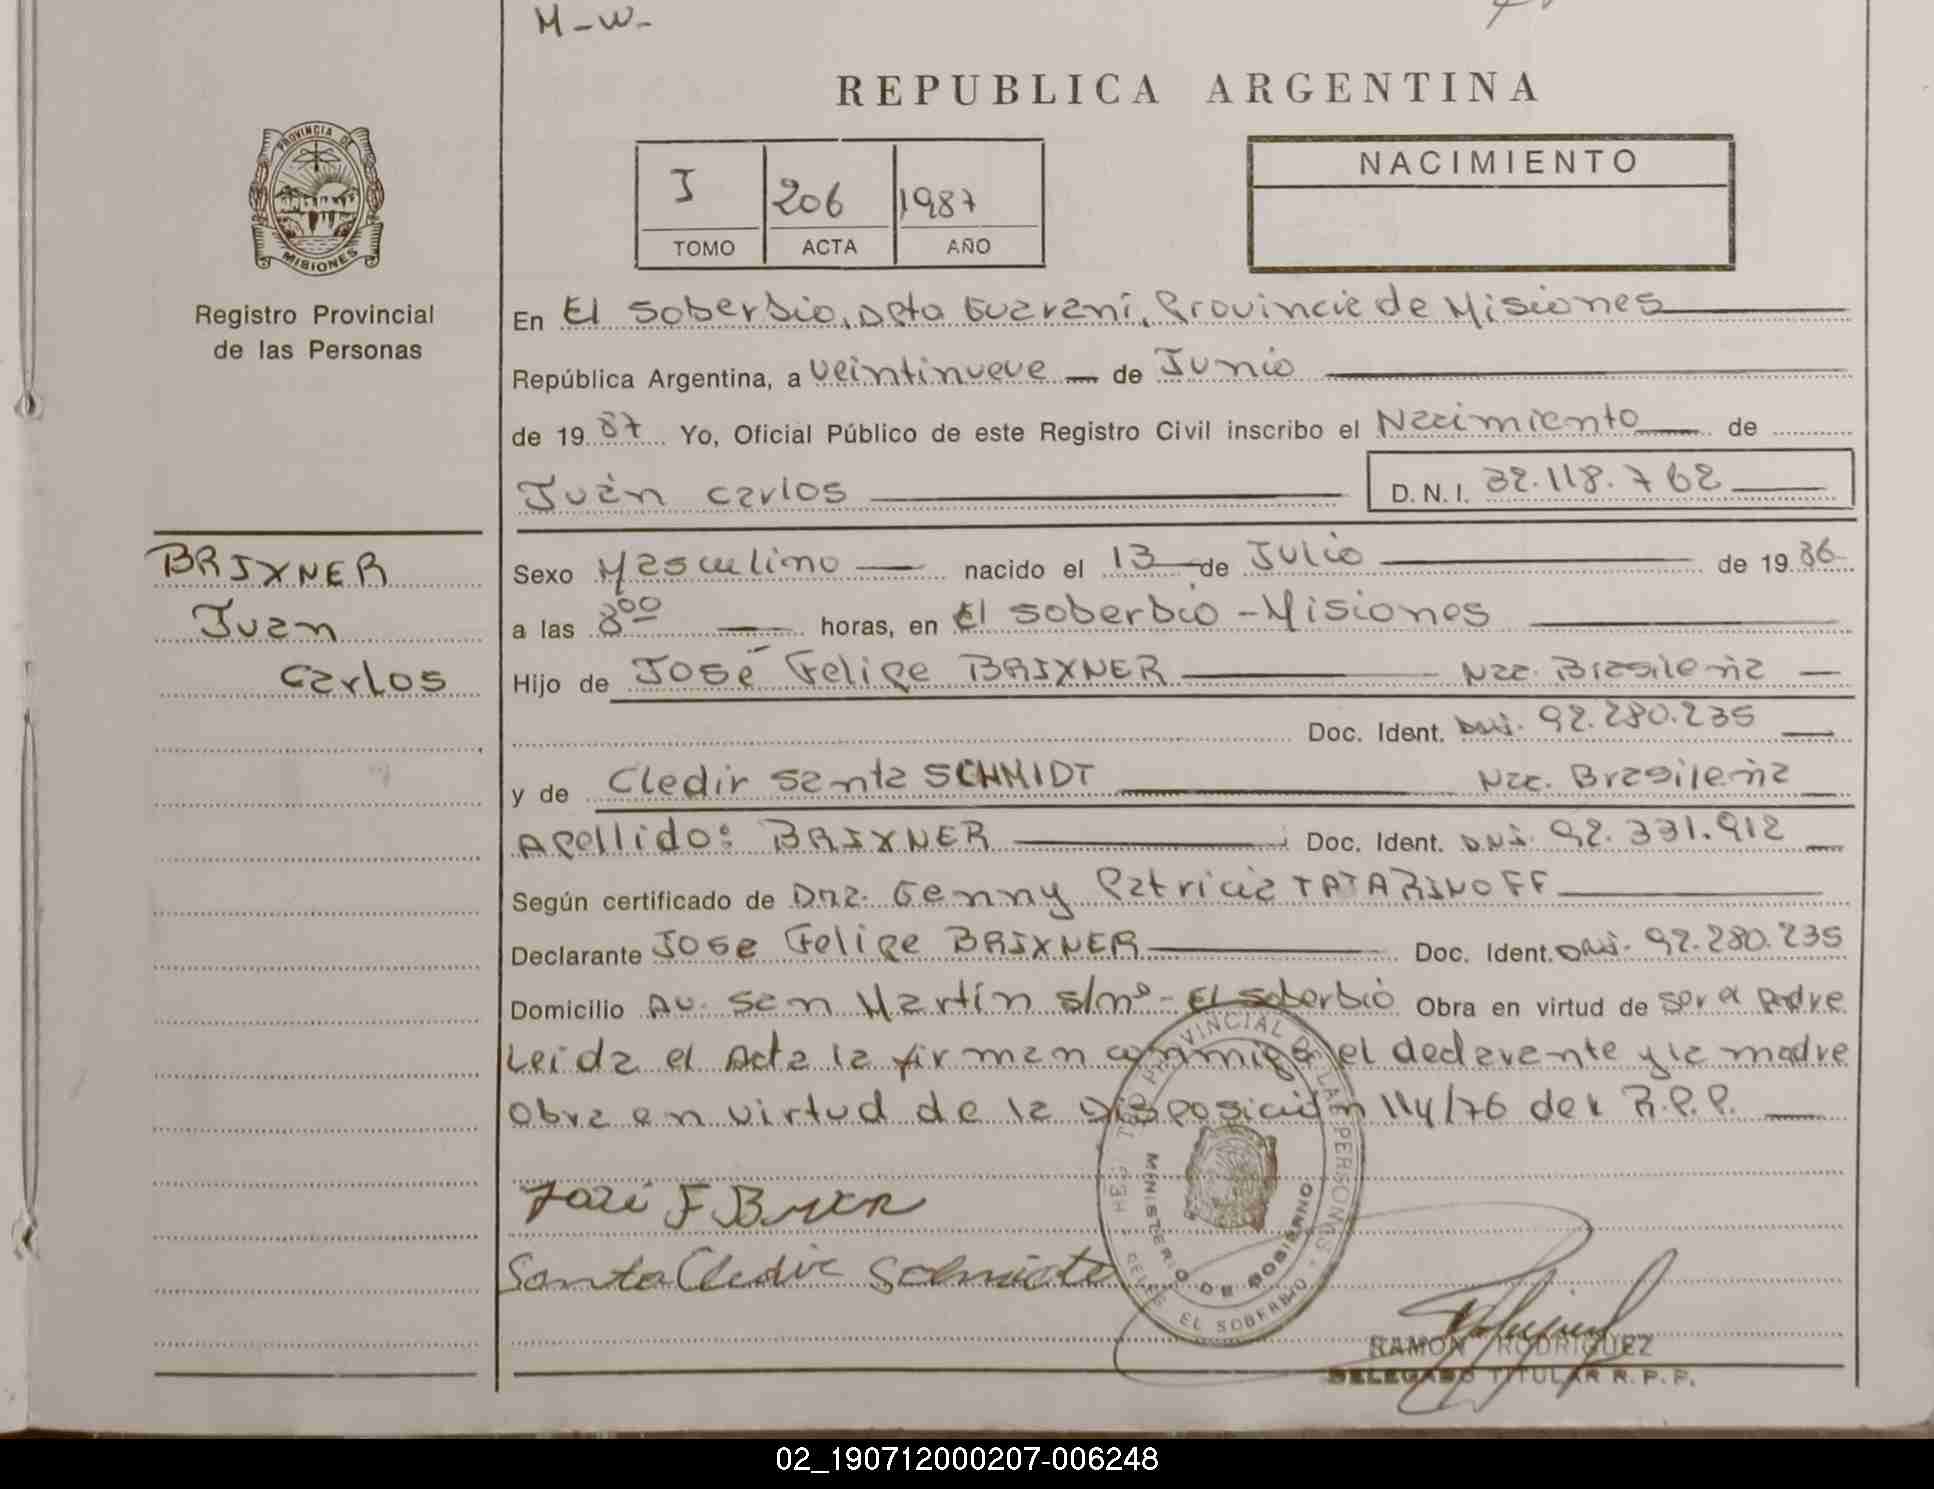 M-W-
REPUBLICA ARGENTINA
PROVINCIA DE
MISIONES
Registro Provincial
de las Personas
I 206 1987
TOMO ACTA AÑO
NACIMIENTO
En El Soberbio, Dpto Guaraní, Provincia de Misiones
República Argentina, a veintinueve de Junio
de 1987 Yo, Oficial Público de este Registro Civil inscribo el Nacimiento de
Juan Carlos D.N.I. 32.118.762
BRIXNER
Juan
Carlos
Sexo Masculino nacido el 13 de Julio de 1986
a las 8 00 horas, en El Soberbio - Misiones
Hijo de José Felipe BRIXNER Nac. Brasileña
Doc. Ident. DNI. 92.280.235
y de Cledir Santa SCHMIDT Nac. Brasileña
Apellido: BRIXNER Doc. Ident. DNI. 92.331.912
Según certificado de Dra. Genny Patricia TATARINOFF
Declarante José Felipe BRIXNER Doc. Ident. DNI. 92.280.235
Domicilio Av. San Martín s/nº - El Soberbio Obra en virtud de ser el Padre
Leida el Acta la firman conmigo el declarante y la madre
Obra en virtud de la Disposición 114/76 del R.P.P.
José F Brixner
Santa Cledir Schmidt
PROVINCIAL DE LAS PERSONAS
MINISTERIO DE GOBIERNO
EL SOBERBIO
RAMON RODRIGUEZ
DELEGADO TITULAR R.P.P.
02_190712000207-006248